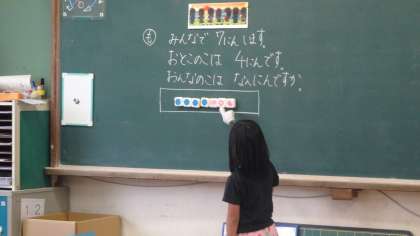 も みんなで 7にんします。
おとこのこは 4にんです。
おんなのこは なんにんですか。
1.2